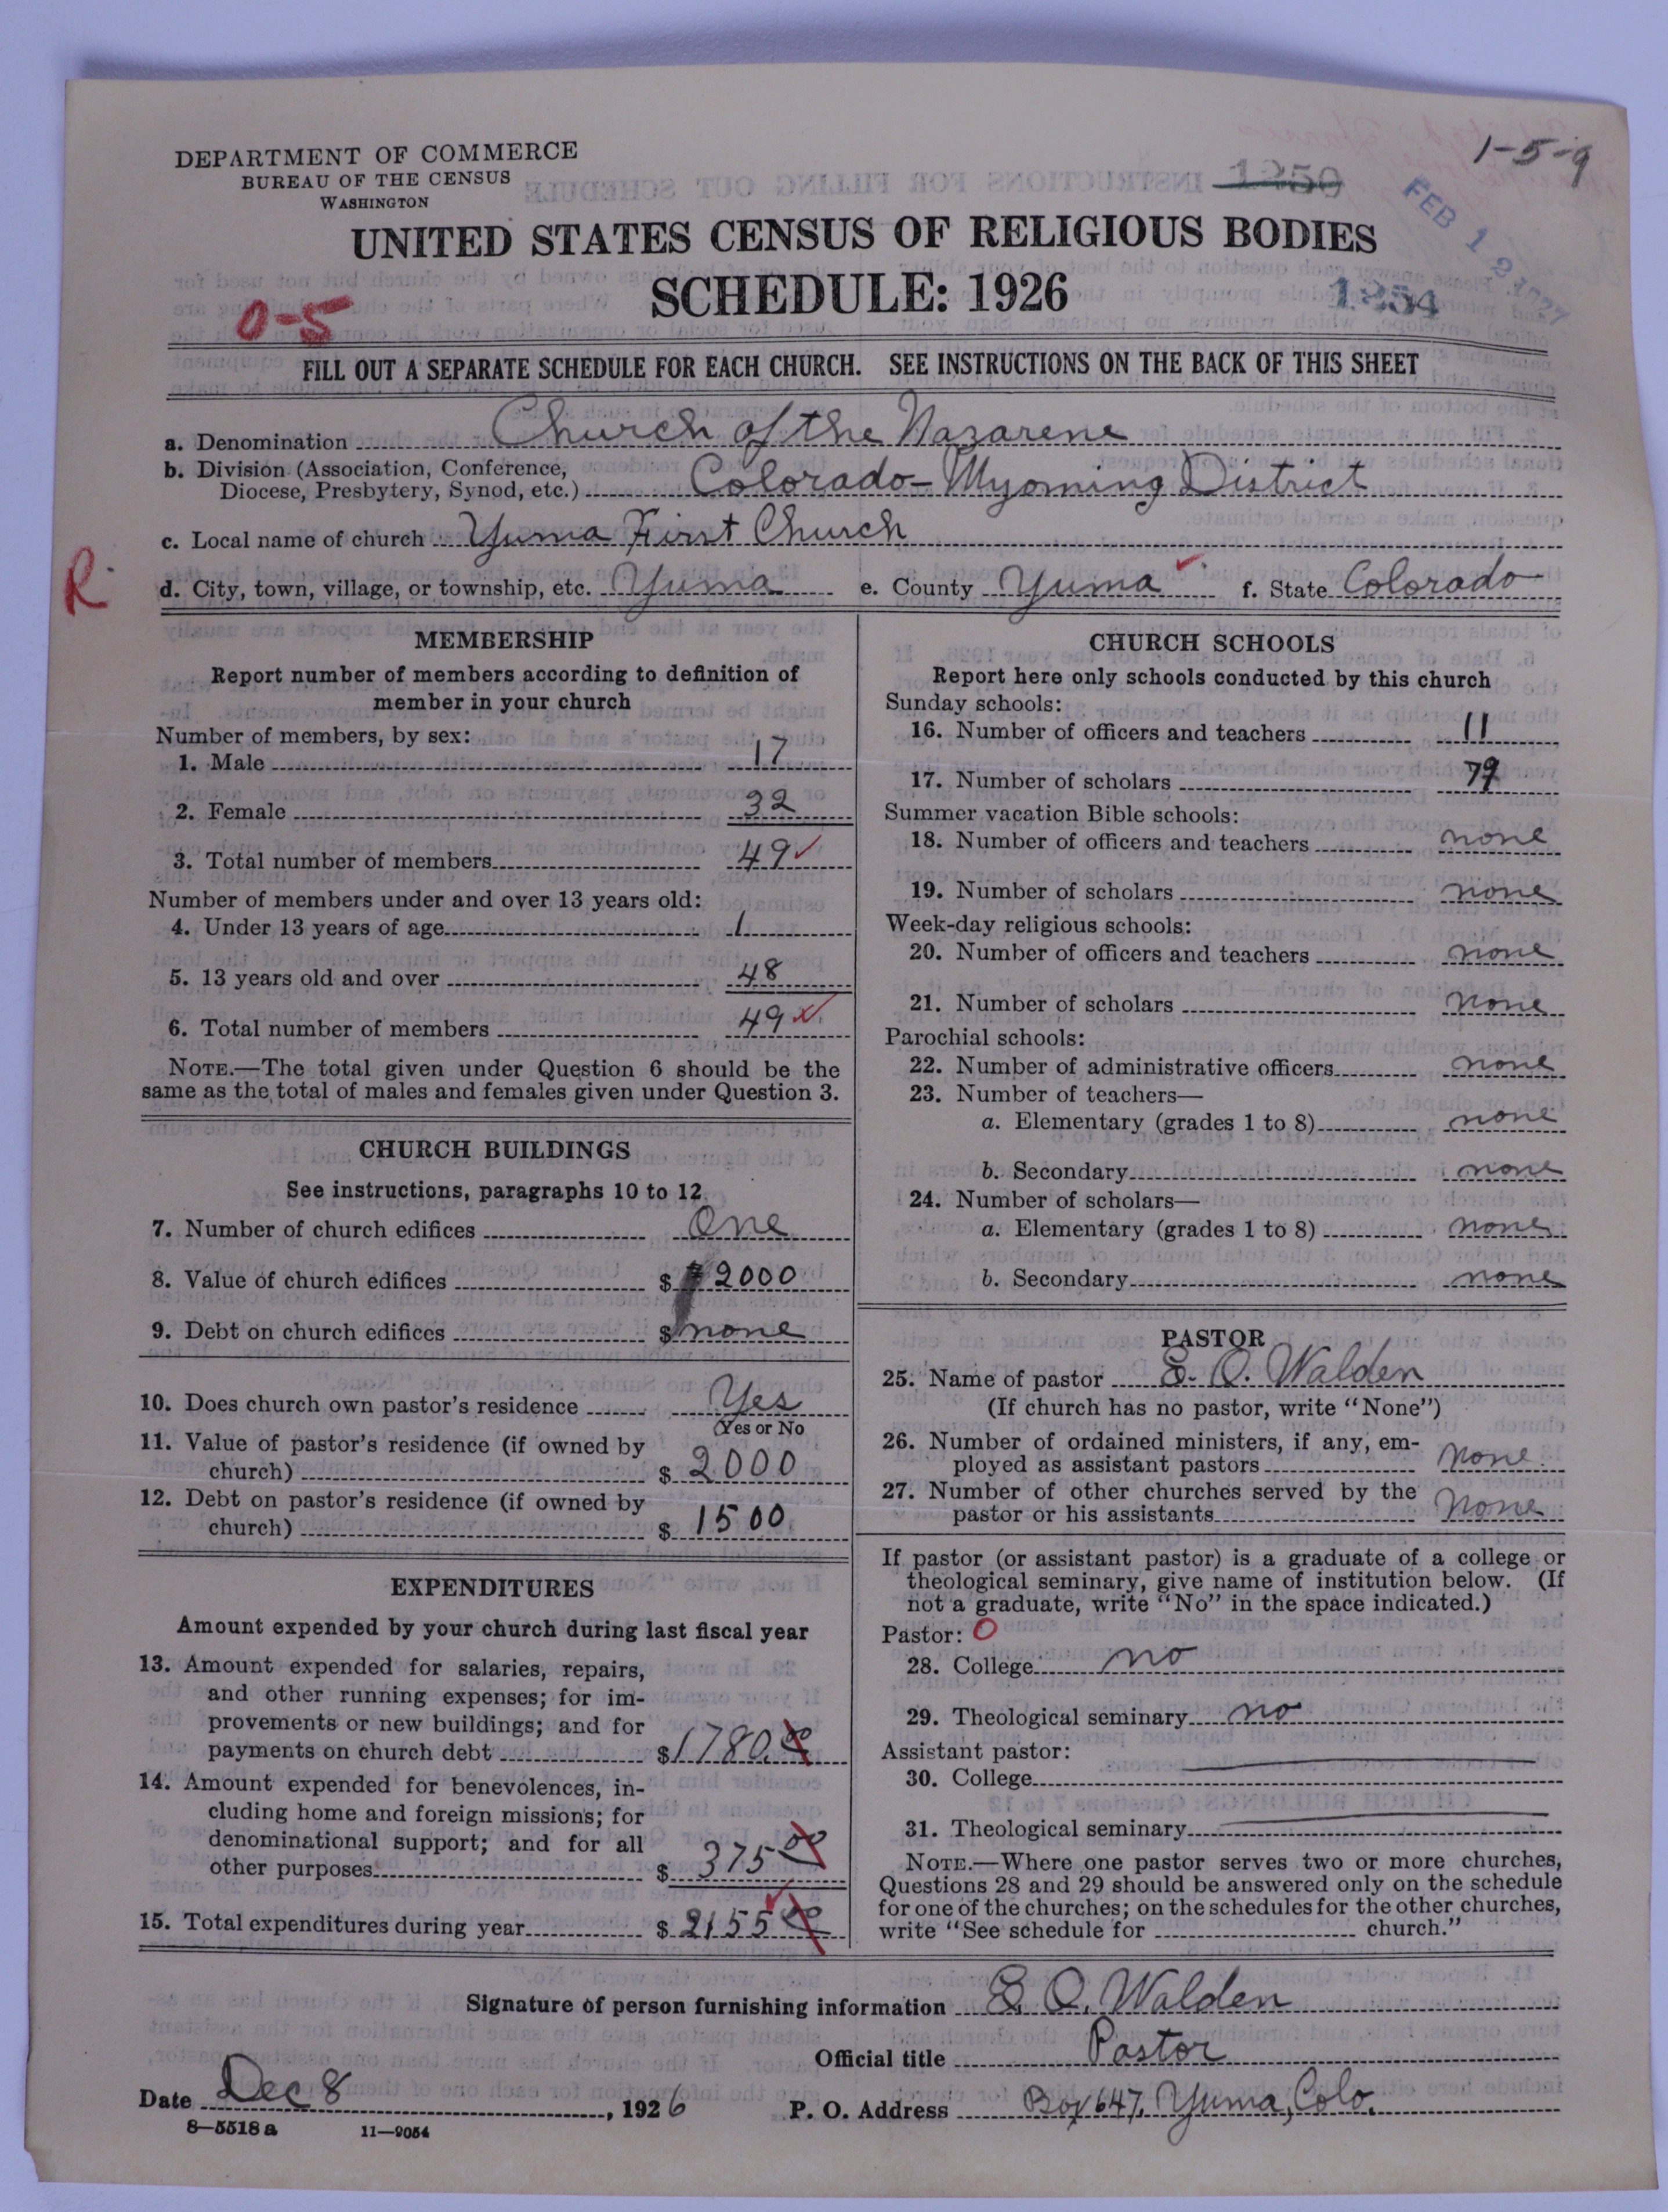 DEPARTMENT OF COMMERCE
BUREAU OF THE CENSUS
WASHINGTON
1-5-9
1250
FEB 12 1927
UNITED STATES CENSUS OF RELIGIOUS BODIES
SCHEDULE: 1926
1254
0-5
FILL OUT A SEPARATE SCHEDULE FOR EACH CHURCH. SEE INSTRUCTIONS ON THE BACK OF THIS SHEET
a. Denomination Church of the Nazarene
b. Division (Association, Conference,
Diocese, Presbytery, Synod, etc.) Colorado-Wyoming District
c. Local name of church Yuma First Church
R
d. City, town, village, or township, etc. Yuma e. County Yuma f. State Colorado
MEMBERSHIP
Report number of members according to definition of
member in your church
Number of members, by sex:
1. Male 17
2. Female 32
3. Total number of members 49
Number of members under and over 13 years old:
4. Under 13 years of age 1
5. 13 years old and over 48
6. Total number of members 49
NOTE.—The total given under Question 6 should be the
same as the total of males and females given under Question 3.
CHURCH BUILDINGS
See instructions, paragraphs 10 to 12
7. Number of church edifices One
8. Value of church edifices $ 2000
9. Debt on church edifices $ none
10. Does church own pastor's residence Yes
(Yes or No
11. Value of pastor's residence (if owned by
church) $ 2000
12. Debt on pastor's residence (if owned by
church) $ 1500
EXPENDITURES
Amount expended by your church during last fiscal year
13. Amount expended for salaries, repairs,
and other running expenses; for im-
provements or new buildings; and for
payments on church debt $ 1780.00
14. Amount expended for benevolences, in-
cluding home and foreign missions; for
denominational support; and for all
other purposes $ 375 00
15. Total expenditures during year $ 2155 00
CHURCH SCHOOLS
Report here only schools conducted by this church
Sunday schools:
16. Number of officers and teachers 11
17. Number of scholars 79
Summer vacation Bible schools:
18. Number of officers and teachers none
19. Number of scholars none
Week-day religious schools:
20. Number of officers and teachers none
21. Number of scholars none
Parochial schools:
22. Number of administrative officers none
23. Number of teachers—
a. Elementary (grades 1 to 8) none
b. Secondary none
24. Number of scholars—
a. Elementary (grades 1 to 8) none
b. Secondary none
PASTOR
25. Name of pastor E. O. Walden
(If church has no pastor, write "None")
26. Number of ordained ministers, if any, em-
ployed as assistant pastors None
27. Number of other churches served by the
pastor or his assistants None
If pastor (or assistant pastor) is a graduate of a college or
theological seminary, give name of institution below. (If
not a graduate, write "No" in the space indicated.)
Pastor: 0
28. College no
29. Theological seminary no
Assistant pastor:
30. College
31. Theological seminary
NOTE.—Where one pastor serves two or more churches,
Questions 28 and 29 should be answered only on the schedule
for one of the churches; on the schedules for the other churches,
write "See schedule for church."
Signature of person furnishing information E. O. Walden
Official title Pastor
Date Dec 8, 1926 P. O. Address Box 647, Yuma, Colo.
8—5518 a 11—9054